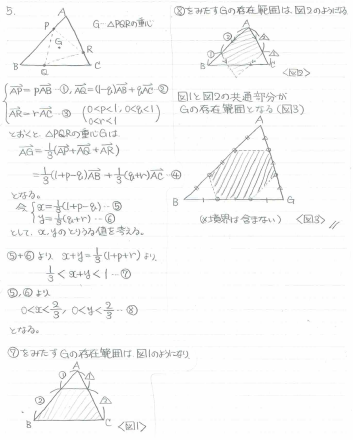 5.
G…△PQRの重心
A
P
G
R
B
Q
C
AP=pAB…①, AQ=(1-q)AB+qAC…②
AR=rAC…③ (0<p<1, 0<q<1
0<r<1)
とおくと △PQRの重心Gは
AG=1/3(AP+AQ+AR)
=1/3(1+p-q)AB+1/3(q+r)AC…④
となる。
今 x=1/3(1+p-q)…⑤
y=1/3(q+r)…⑥
として、x,yのとりうる値を考える。
⑤+⑥より x+y=1/3(1+p+r) より
1/3<x+y<1…⑦
⑤,⑥より
0<x<2/3, 0<y<2/3…⑧
となる。
⑦をみたすGの存在範囲は 図1のようになり
A
① 1
② 2
B
C
<図1>
⑧をみたすGの存在範囲は 図2のようになる
A
B
C
<図2>
図1と図2の共通部分が
Gの存在範囲となる(図3)
A
B
G
(※境界は含まない) <図3>